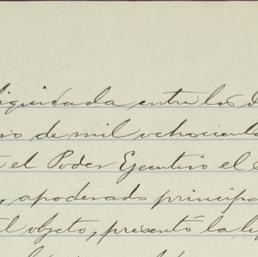 liquidada entre los
de mil ochocient
el Poder Ejecutivo el
, apoderado princip
objeto, presentó la